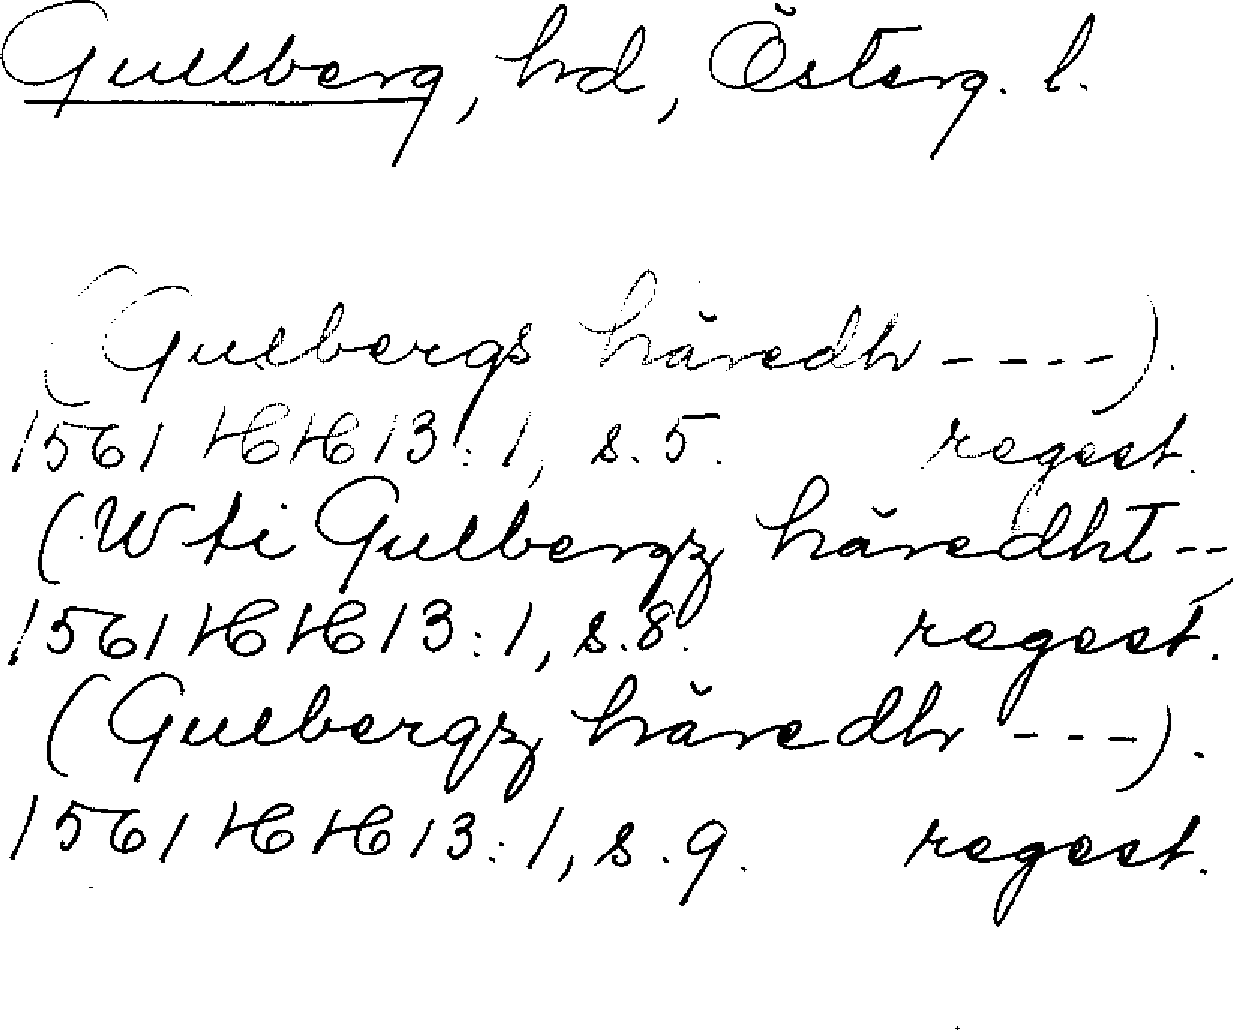 Gullberg, hd, Österg. l.
(Gulbergs häredh ----).
1561 HH 13:1, s. 5. regest.
(W ti Gulbergz häredht --)
1561 HH 13:1, s. 8. regest.
(Gulbergz häredh ---).
1561 HH 13:1, s. 9. regest.